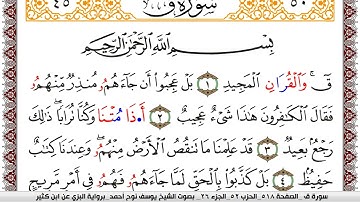 ٥٠ سُورَةُ ق ٤٥
بِسْمِ ٱللَّهِ ٱلرَّحْمَٰنِ ٱلرَّحِيمِ
قٓۚ وَٱلْقُرَانِ ٱلْمَجِيدِ ١ بَلْ عَجِبُوٓا۟ أَن جَآءَهُمُۥ مُنذِرٌ مِّنْهُمُۥ
فَقَالَ ٱلْكَٰفِرُونَ هَٰذَا شَىْءٌ عَجِيبٌ ٢ أَ.ذَا مُتْنَا وَكُنَّا تُرَابًاۖ ذَٰلِكَ
رَجْعٌۢ بَعِيدٌ ٣ قَدْ عَلِمْنَا مَا تَنقُصُ ٱلْأَرْضُ مِنْهُمُۥۖ وَعِندَنَا كِتَٰبٌ
حَفِيظٌۢ ٤ بَلْ كَذَّبُوا۟ بِٱلْحَقِّ لَمَّا جَآءَهُمُۥ فَهُمُۥ فِىٓ أَمْرٍ مَّرِيجٍ
سورة ق الصفحة ٥١٨ الحزب ٥٢ الجزء ٢٦ بصوت الشيخ يوسف نوح أحمد برواية البزي عن ابن كثير